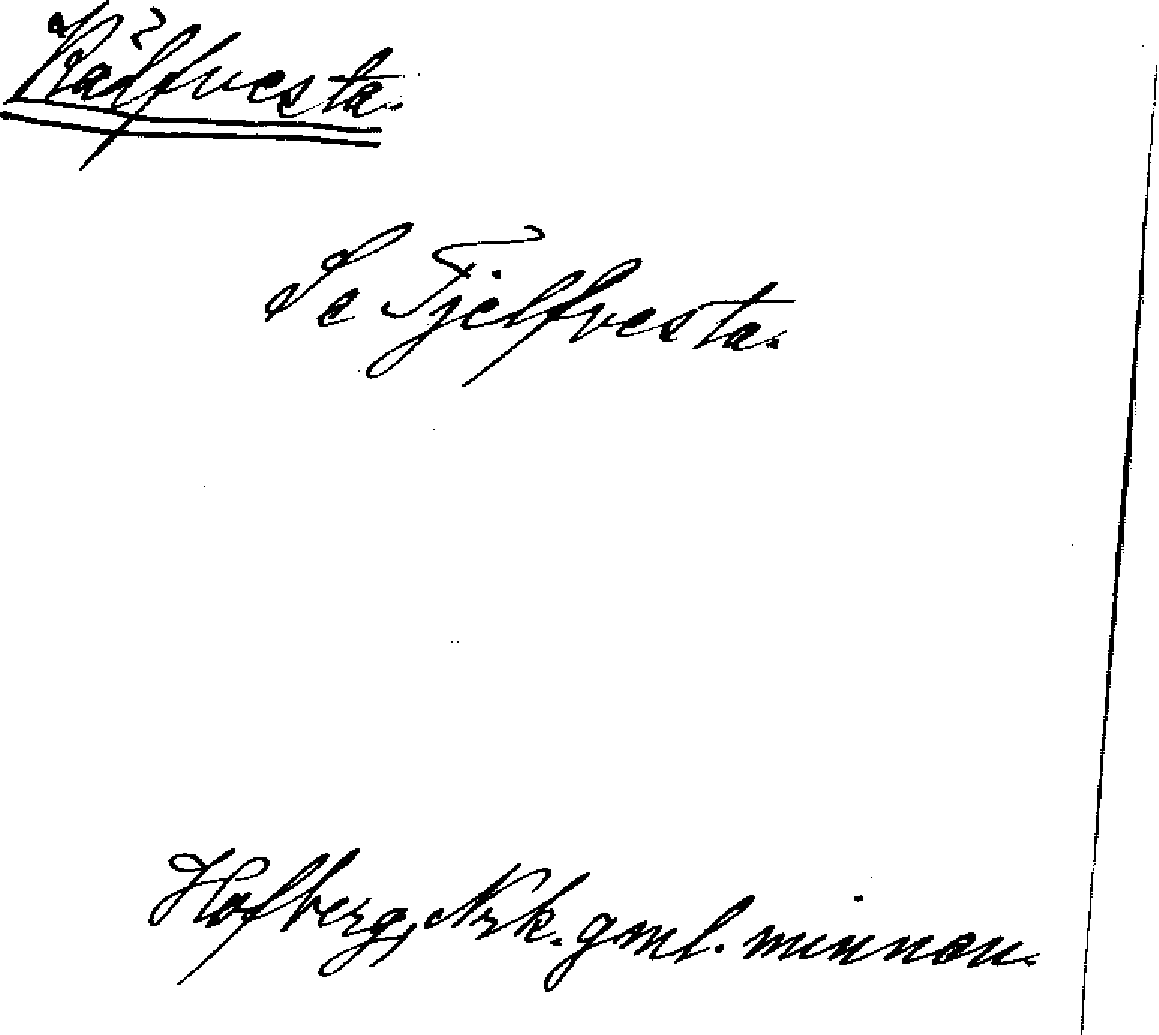 Kälfvesta.
Se Tjelfvesta.
Hofberg, Nrk. gml. minnen.